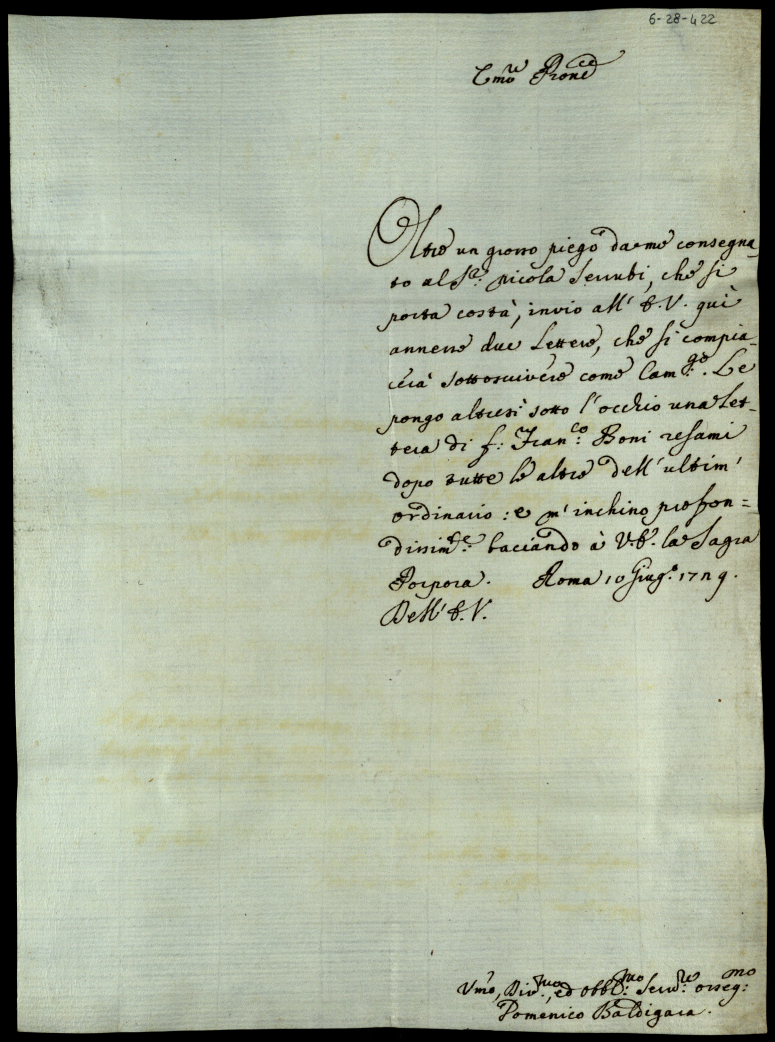 6-28-422
Em̃o Prone
Oltre un grosso piego da me consegna-
to al Sr. Nicola Serrubi, che si
porta costà, invio all' E.V. quì
annesse due Lettere, che si compia-
cerà sottoscrivere come Cam:go. Le
pongo altresì sotto l'occhio una Let-
tera di f: Fran:co Boni resami
dopo tutte le altre dell'ultim'
ordinario: e m'inchino profon=
dissim:te baciando à V.E. la Sagra
Porpora. Roma 10 Giug.o 1729.
Dell' E.V.
Um̃o, Div:mo, ed Obbl:mo Serv:re osseq:mo
Domenico Baldigara.